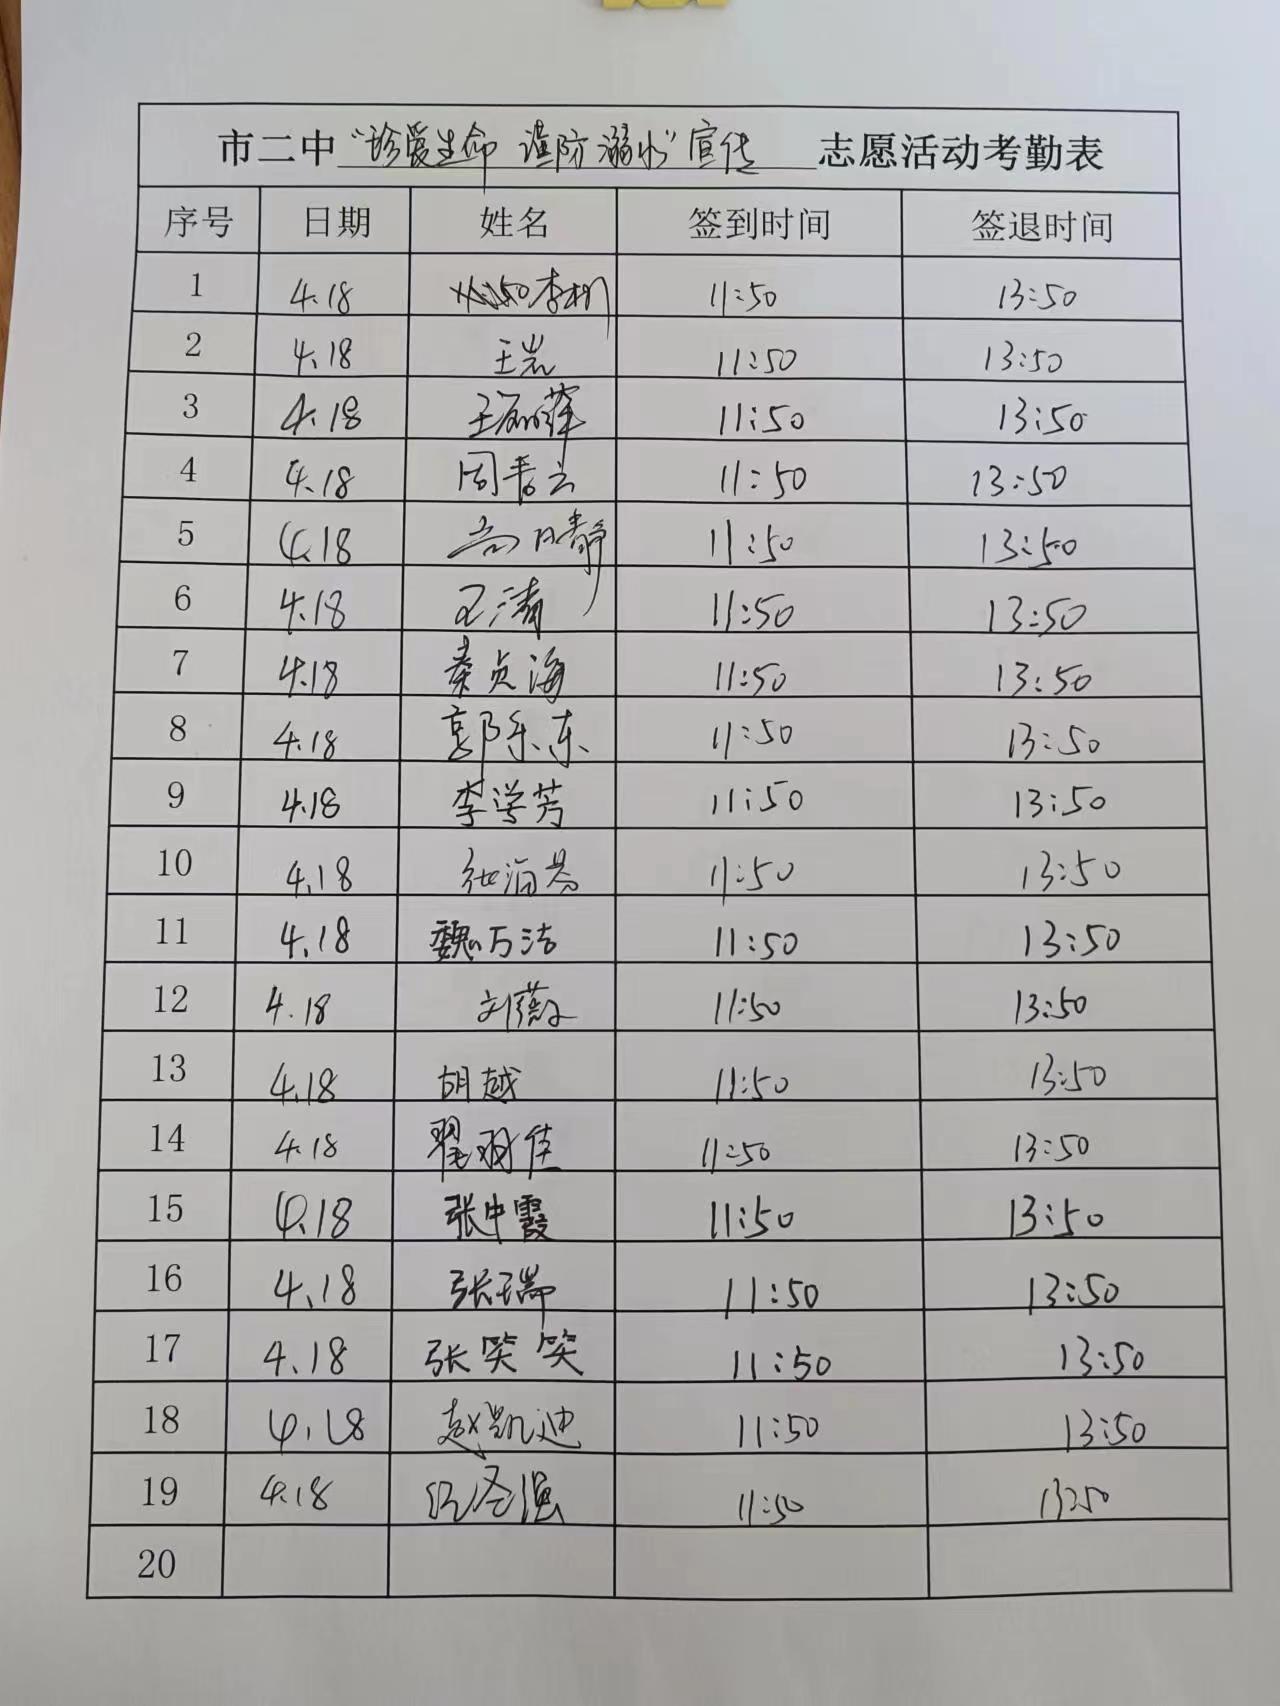 市二中“珍爱生命 谨防溺水”宣传 志愿活动考勤表
序号 日期 姓名 签到时间 签退时间
1 4.18 11:50 13:50
2 4.18 王岩 11:50 13:50
3 4.18 王 11:50 13:50
4 4.18 周春云 11:50 13:50
5 4.18 高 静 11:50 13:50
6 4.18 王清 11:50 13:50
7 4.18 秦贞海 11:50 13:50
8 4.18 郭乐东 11:50 13:50
9 4.18 李学芳 11:50 13:50
10 4.18 张海 11:50 13:50
11 4.18 魏万洁 11:50 13:50
12 4.18 刘薇 11:50 13:50
13 4.18 胡越 11:50 13:50
14 4.18 翟羽佳 11:50 13:50
15 4.18 张中霞 11:50 13:50
16 4.18 张瑞 11:50 13:50
17 4.18 张笑笑 11:50 13:50
18 4.18 赵凯迪 11:50 13:50
19 4.18 11:50 13:50
20